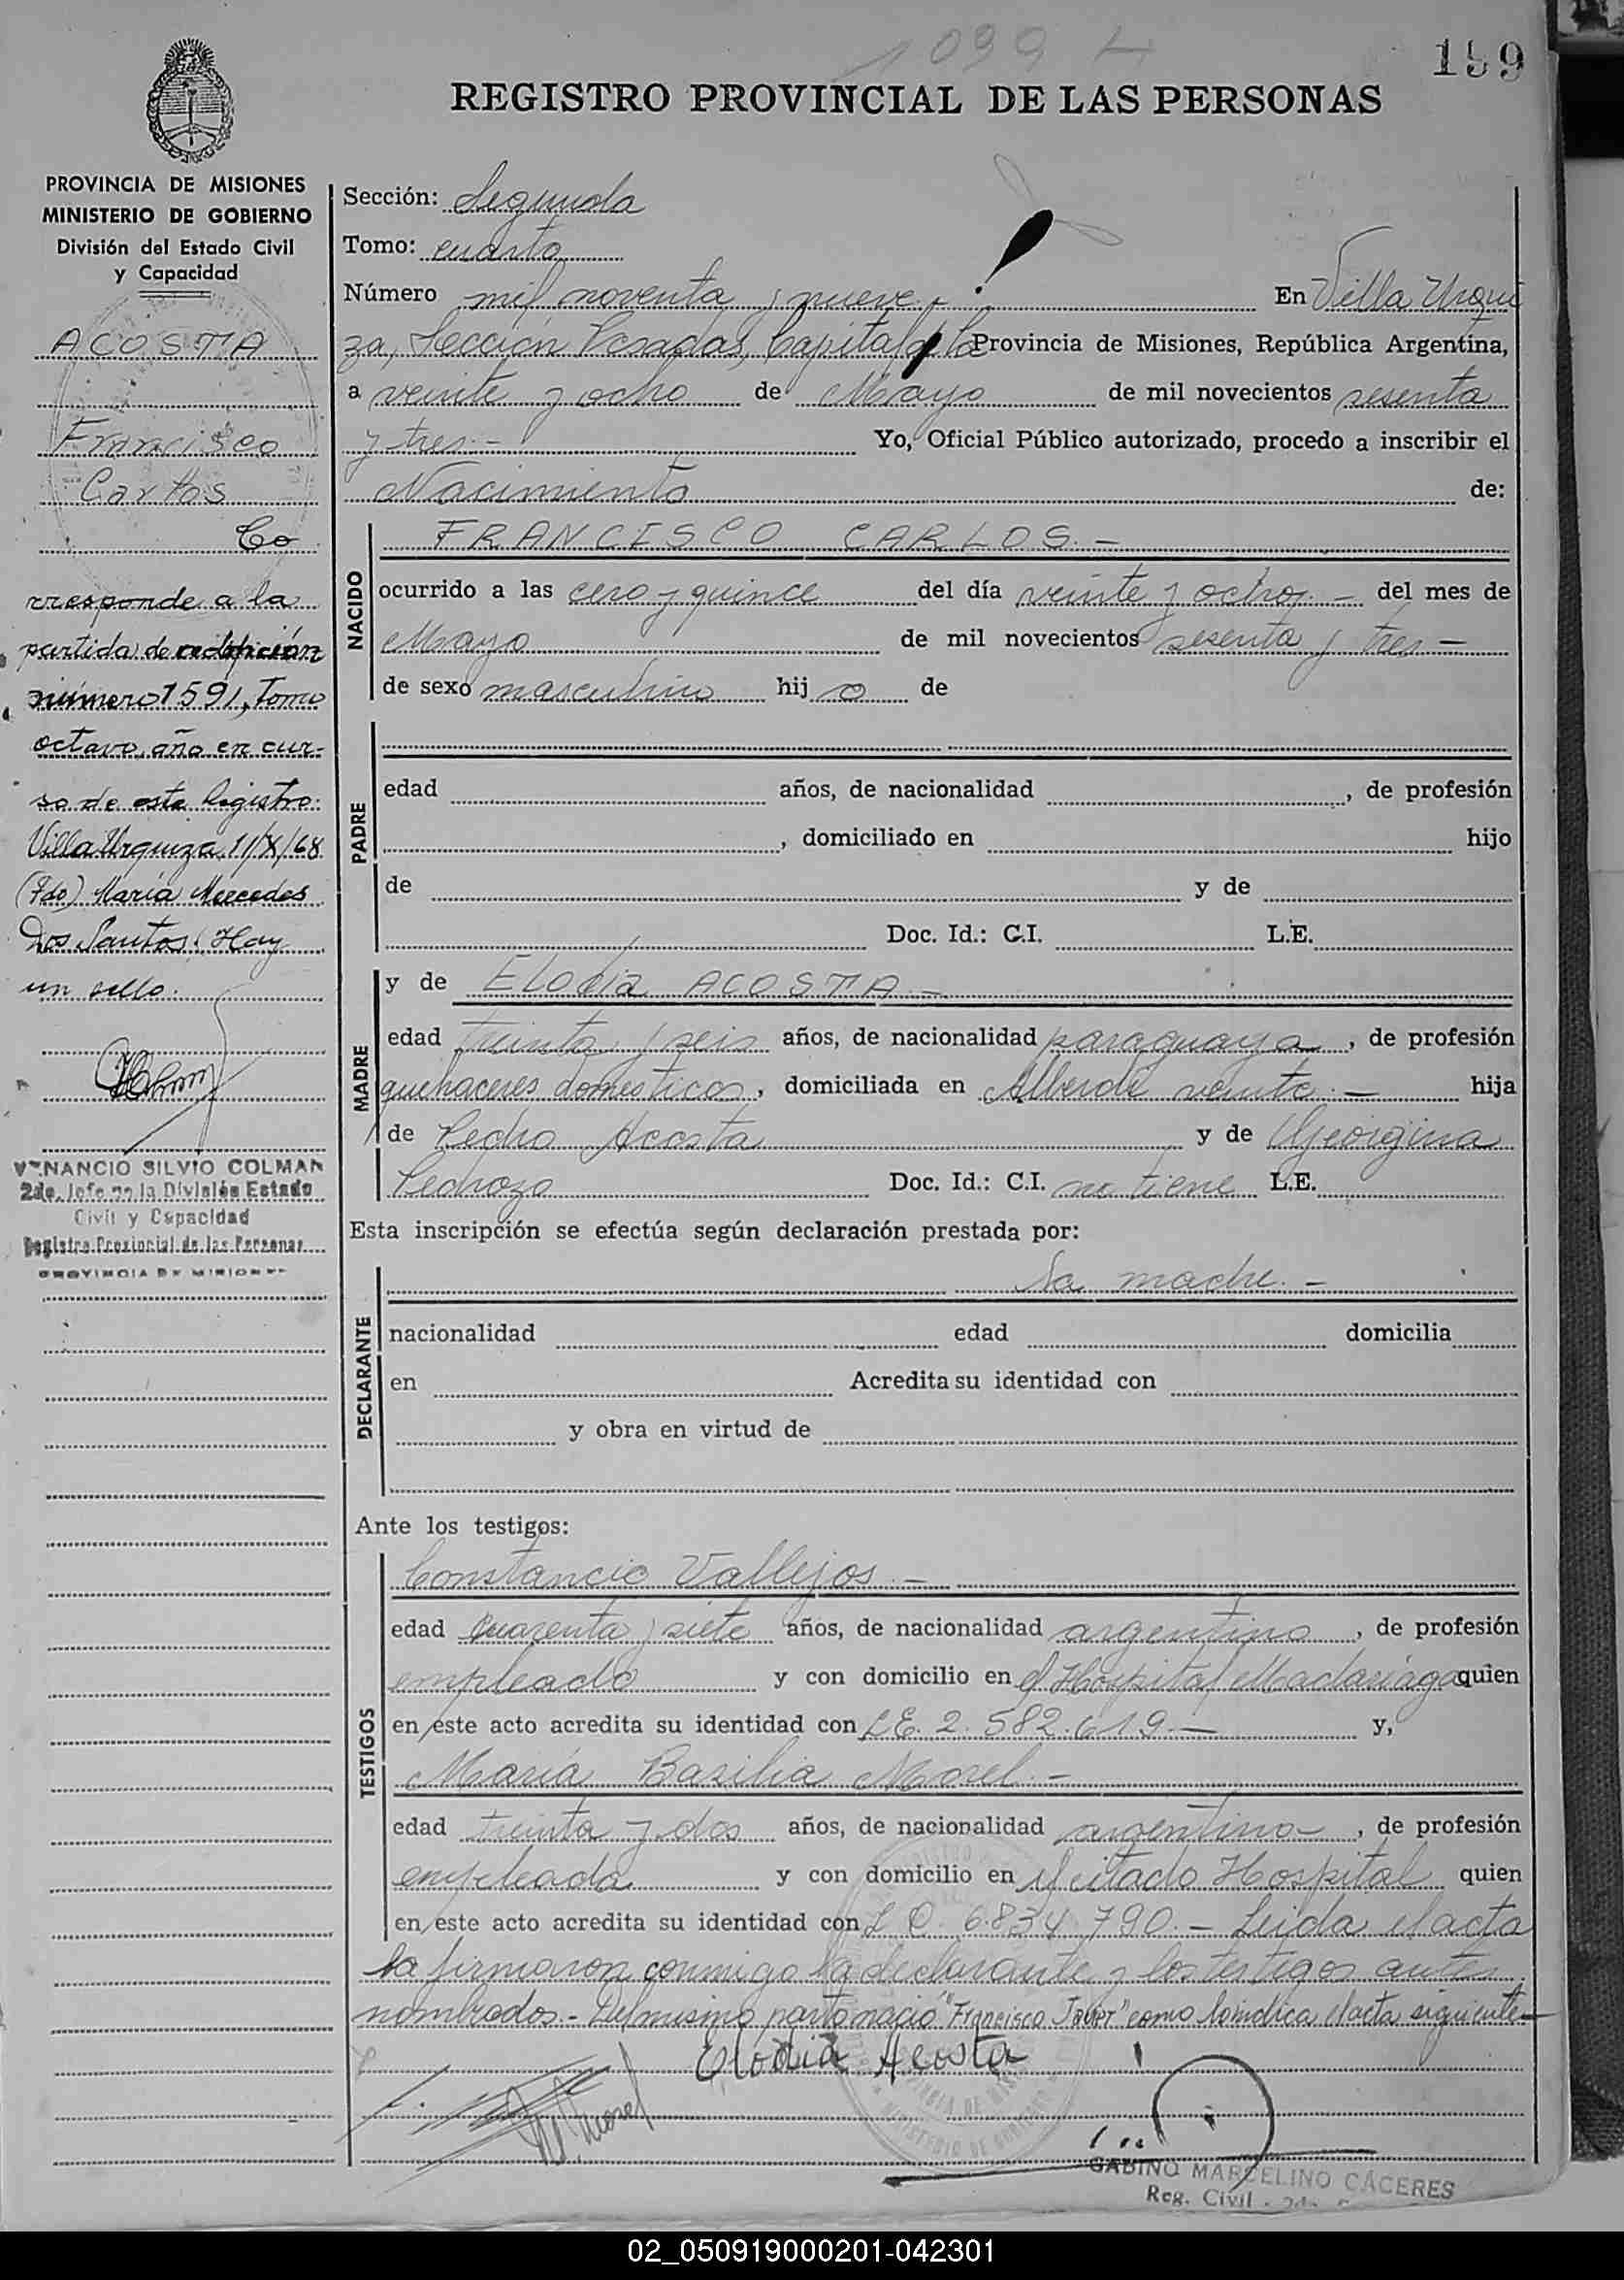 1099 L
199
REGISTRO PROVINCIAL DE LAS PERSONAS
PROVINCIA DE MISIONES
MINISTERIO DE GOBIERNO
División del Estado Civil
y Capacidad
ACOSTA
Francisco
Carlos
Co
rresponde a la
partida de
número 1591, Tomo
octavo, año en cur-
so de este Registro:
Villa Urquiza, 11/X/68
(Fdo) María Mercedes
Dos Santos. Hay
un sello.
VENANCIO SILVIO COLMAN
2do. Jefe de la División Estado
Civil y Capacidad
Registro Provincial de las Personas
PROVINCIA DE MISIONES
Sección: Segunda
Tomo: cuarto
Número mil noventa y nueve.- En Villa Urqui
za, Sección Posadas, Capital de la Provincia de Misiones, República Argentina,
a veinte y ocho de Mayo de mil novecientos sesenta
y tres.- Yo, Oficial Público autorizado, procedo a inscribir el
Nacimiento de:
NACIDO
FRANCISCO CARLOS.-
ocurrido a las cero y quince del día veinte y ocho.- del mes de
Mayo de mil novecientos sesenta y tres-
de sexo masculino hij o de
PADRE
edad años, de nacionalidad , de profesión
, domiciliado en hijo
de y de
Doc. Id.: C.I. L.E.
MADRE
y de Elodia ACOSTA.-
edad treinta y seis años, de nacionalidad paraguaya, de profesión
quehaceres domesticos, domiciliada en Alberdi veinte.- hija
de Pedro Acosta y de Georgina
Pedrozo Doc. Id.: C.I. no tiene L.E.
Esta inscripción se efectúa según declaración prestada por:
DECLARANTE
La madre.-
nacionalidad edad domicilia
en Acredita su identidad con
y obra en virtud de
Ante los testigos:
TESTIGOS
Constancio Vallejos.-
edad cuarenta y siete años, de nacionalidad argentino, de profesión
empleado y con domicilio en el Hospital Madariaga quien
en este acto acredita su identidad con L.E. 2.582.619.- y,
María Basilia Morel.-
edad treinta y dos años, de nacionalidad argentina, de profesión
empleada y con domicilio en el citado Hospital quien
en este acto acredita su identidad con L C. 6.834.790.- Leida el acta
la firmaron conmigo la declarante y los testigos antes
nombrados.- Del mismo parto nació "Francisco Javier" como lo indica el acta siguiente-
Elodia Acosta
GABINO MARCELINO CACERES
Reg. Civil
02_050919000201-042301